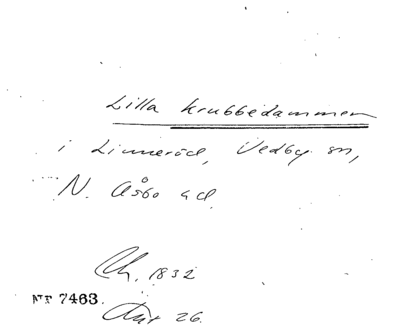 Lilla Krubbedammen
i Linneröd, Vedby sn,
N. Åsbo hd.
Ch. 1832
Nr 7463.
26.